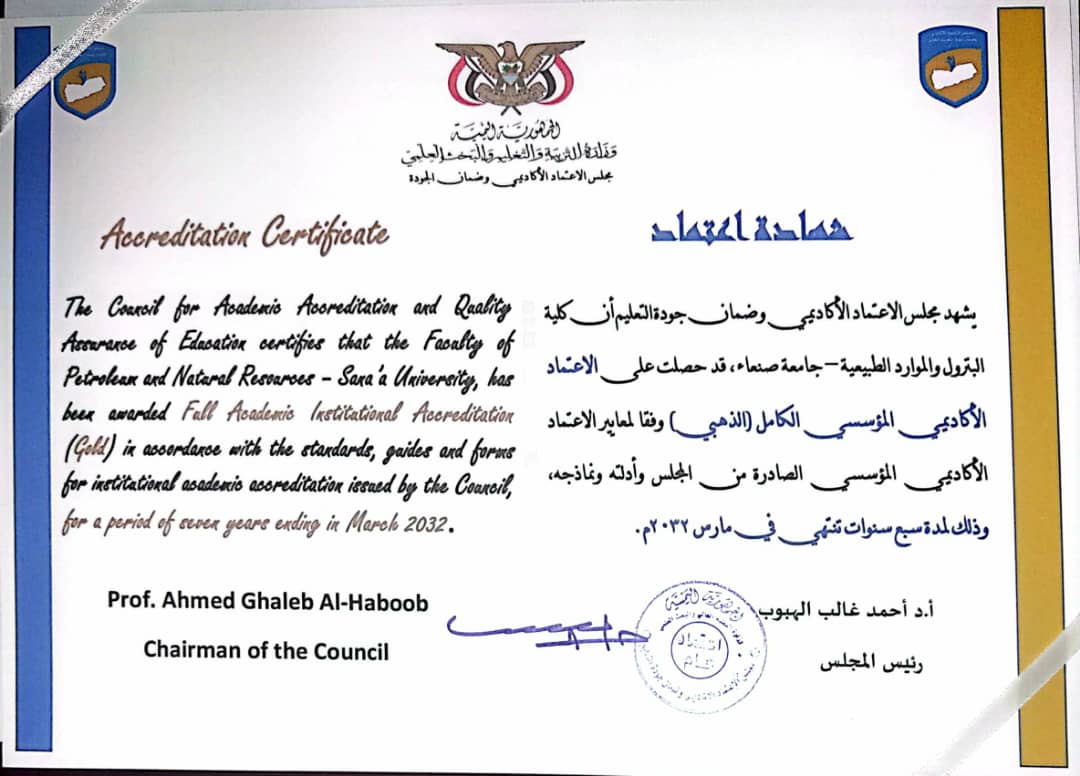 الجمهورية اليمنية
وزارة التربية والتعليم والبحث العلمي
مجلس الاعتماد الأكاديمي وضمان الجودة
Accreditation Certificate
The Council for Academic Accreditation and Quality
Assurance of Education certifies that the Faculty of
Petroleum and Natural Resources – Sana'a University, has
been awarded Full Academic Institutional Accreditation
(Gold) in accordance with the standards, guides and forms
for institutional academic accreditation issued by the Council,
for a period of seven years ending in March 2032.
Prof. Ahmed Ghaleb Al-Haboob
Chairman of the Council
شهادة اعتماد
يشهد مجلس الاعتماد الأكاديمي وضمان جودة التعليم أن كلية
البترول والموارد الطبيعية – جامعة صنعاء، قد حصلت على الاعتماد
الأكاديمي المؤسسي الكامل (الذهبي) وفقا لمعايير الاعتماد
الأكاديمي المؤسسي الصادرة من المجلس وأدلته ونماذجه،
وذلك لمدة سبع سنوات تنتهي في مارس ٢٠٣٢م.
أ.د أحمد غالب الهبوب
رئيس المجلس
الجمهورية اليمنية
اعتماد